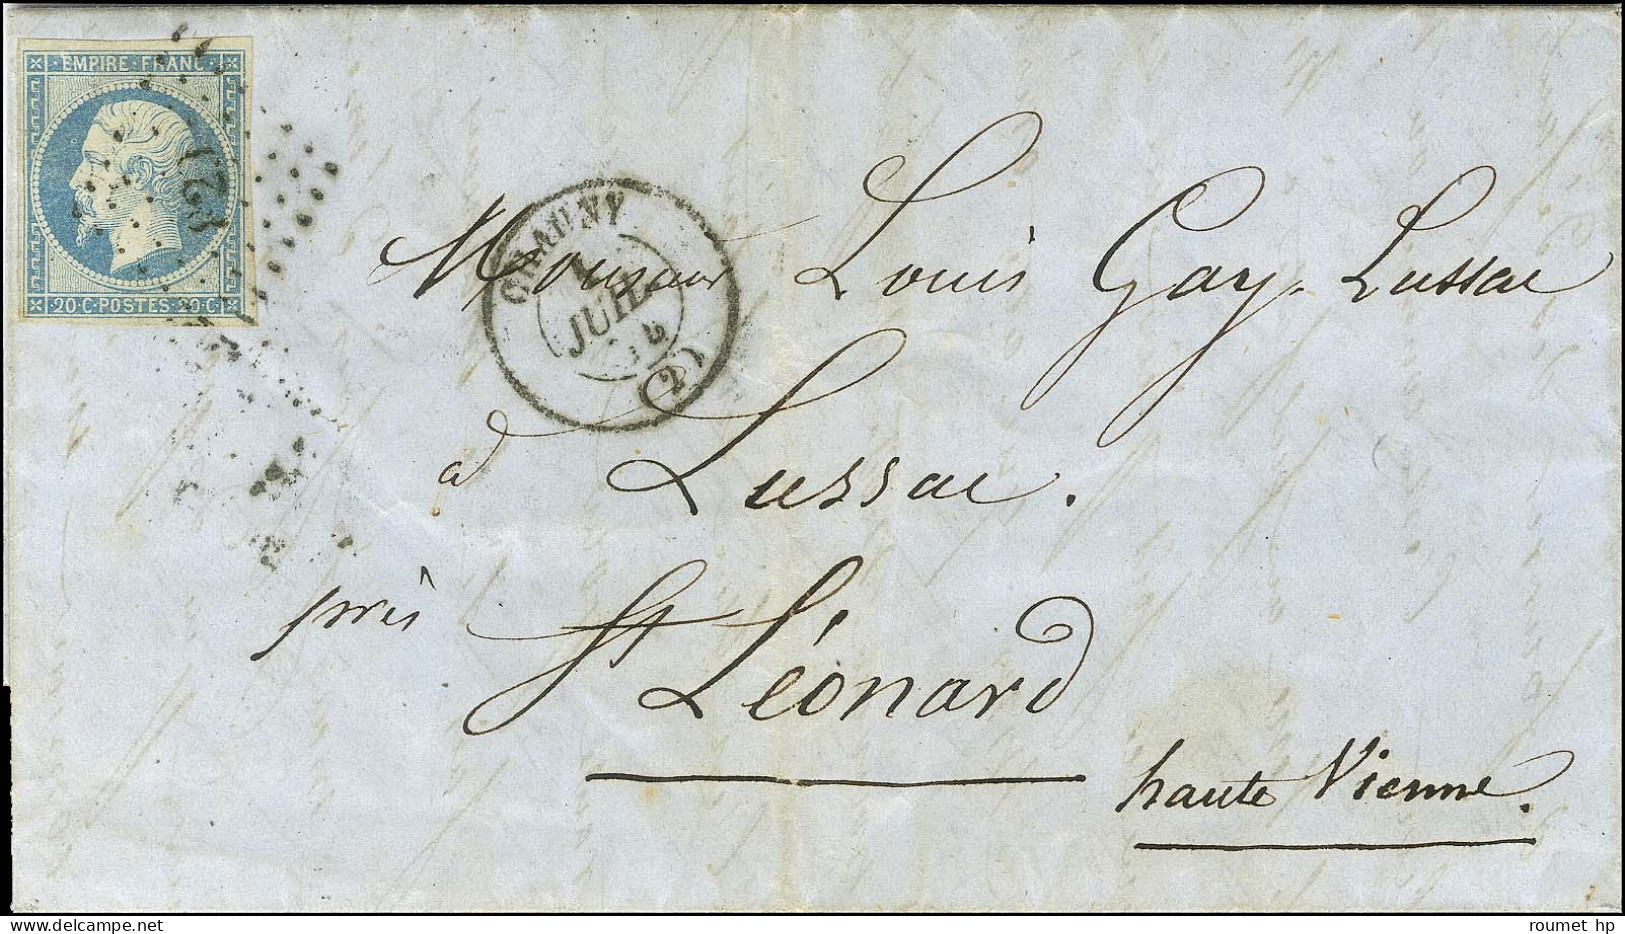 EMPIRE · FRANC ·
20 · C · POSTES · 20 · C ·
CHAUNY
JUIL
54
(2)
Monsieur Louis Gay-Lussac
à Lussac.
près St Léonard
haute Vienne.
roumet hp